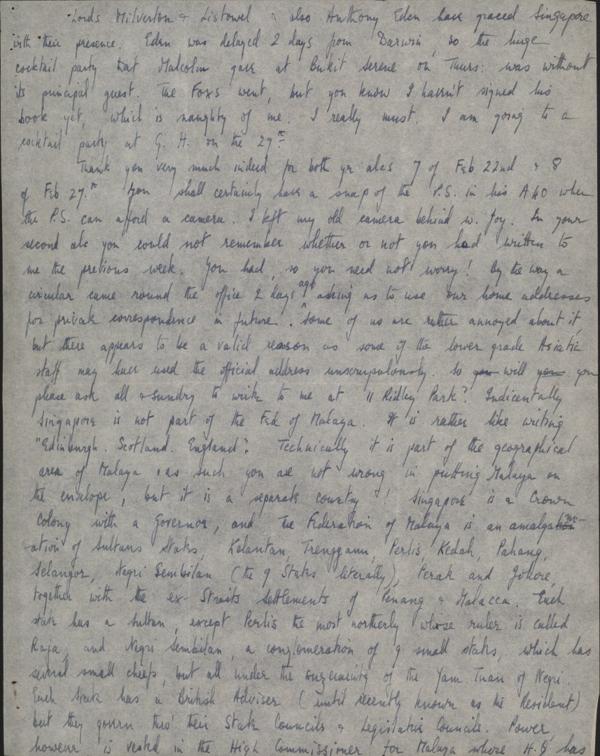 Lords Milverton & Listowel & also Anthony Eden have graced Singapore
with their presence. Eden was delayed 2 days from Darwin, so the huge
cocktail party that Malcolm gave at Bukit Serene on Thurs: was without
its principal guest. The Foxs went, but you know I haven't signed his
book yet, which is naughty of me. I really must. I am going to a
cocktail party at G. H. on the 27th
Thank you very much indeed for both yr alcs 7 of Feb 22nd & 8
of Feb 27th. You shall certainly have a snap of the P.S. in his A40 when
the P.S. can afford a camera. I left my old camera behind w. Joy. In your
second alc you could not remember whether or not you had written to
me the previous week. You had, so you need not worry! By the way a
circular came round the office 2 days ago asking us to use our home addresses
for private correspondence in future. Some of us are rather annoyed about it,
but there appears to be a valid reason as some of the lower grade Asiatic
staff may have used the official address unscrupulously. So you will you you
please ask all & sundry to write to me at "11 Ridley Park". Indicentally
Singapore is not part of the Fed of Malaya. It is rather like writing
"Edinburgh. Scotland. England". Technically it is part of the geographical
area of Malaya & as such you are not wrong in putting Malaya on
the envelope, but it is a separate country! Singapore is a Crown
Colony with a Governor, and The Federation of Malaya is an amalgam-
ation of Sultans States, Kelantan, Trengganu, Perlis Kedah, Pahang,
Selangor, Negri Sembilan (the 9 States literally), Perak and Johore,
together with the ex-Straits Settlements of Penang & Malacca. Each
state has a Sultan, except Perlis the most northerly whose ruler is called
Raja, and Negri Sembilan, a conglomeration of 9 small states, which has
several small chiefs, but all under the suzerainty of the Yam Tuan of Negri.
Each State has a British Adviser (until recently known as the Resident)
but they govern thro' their State Councils & Legislative Councils. Power,
however is vested in the High Commissioner for Malaya where H.G has